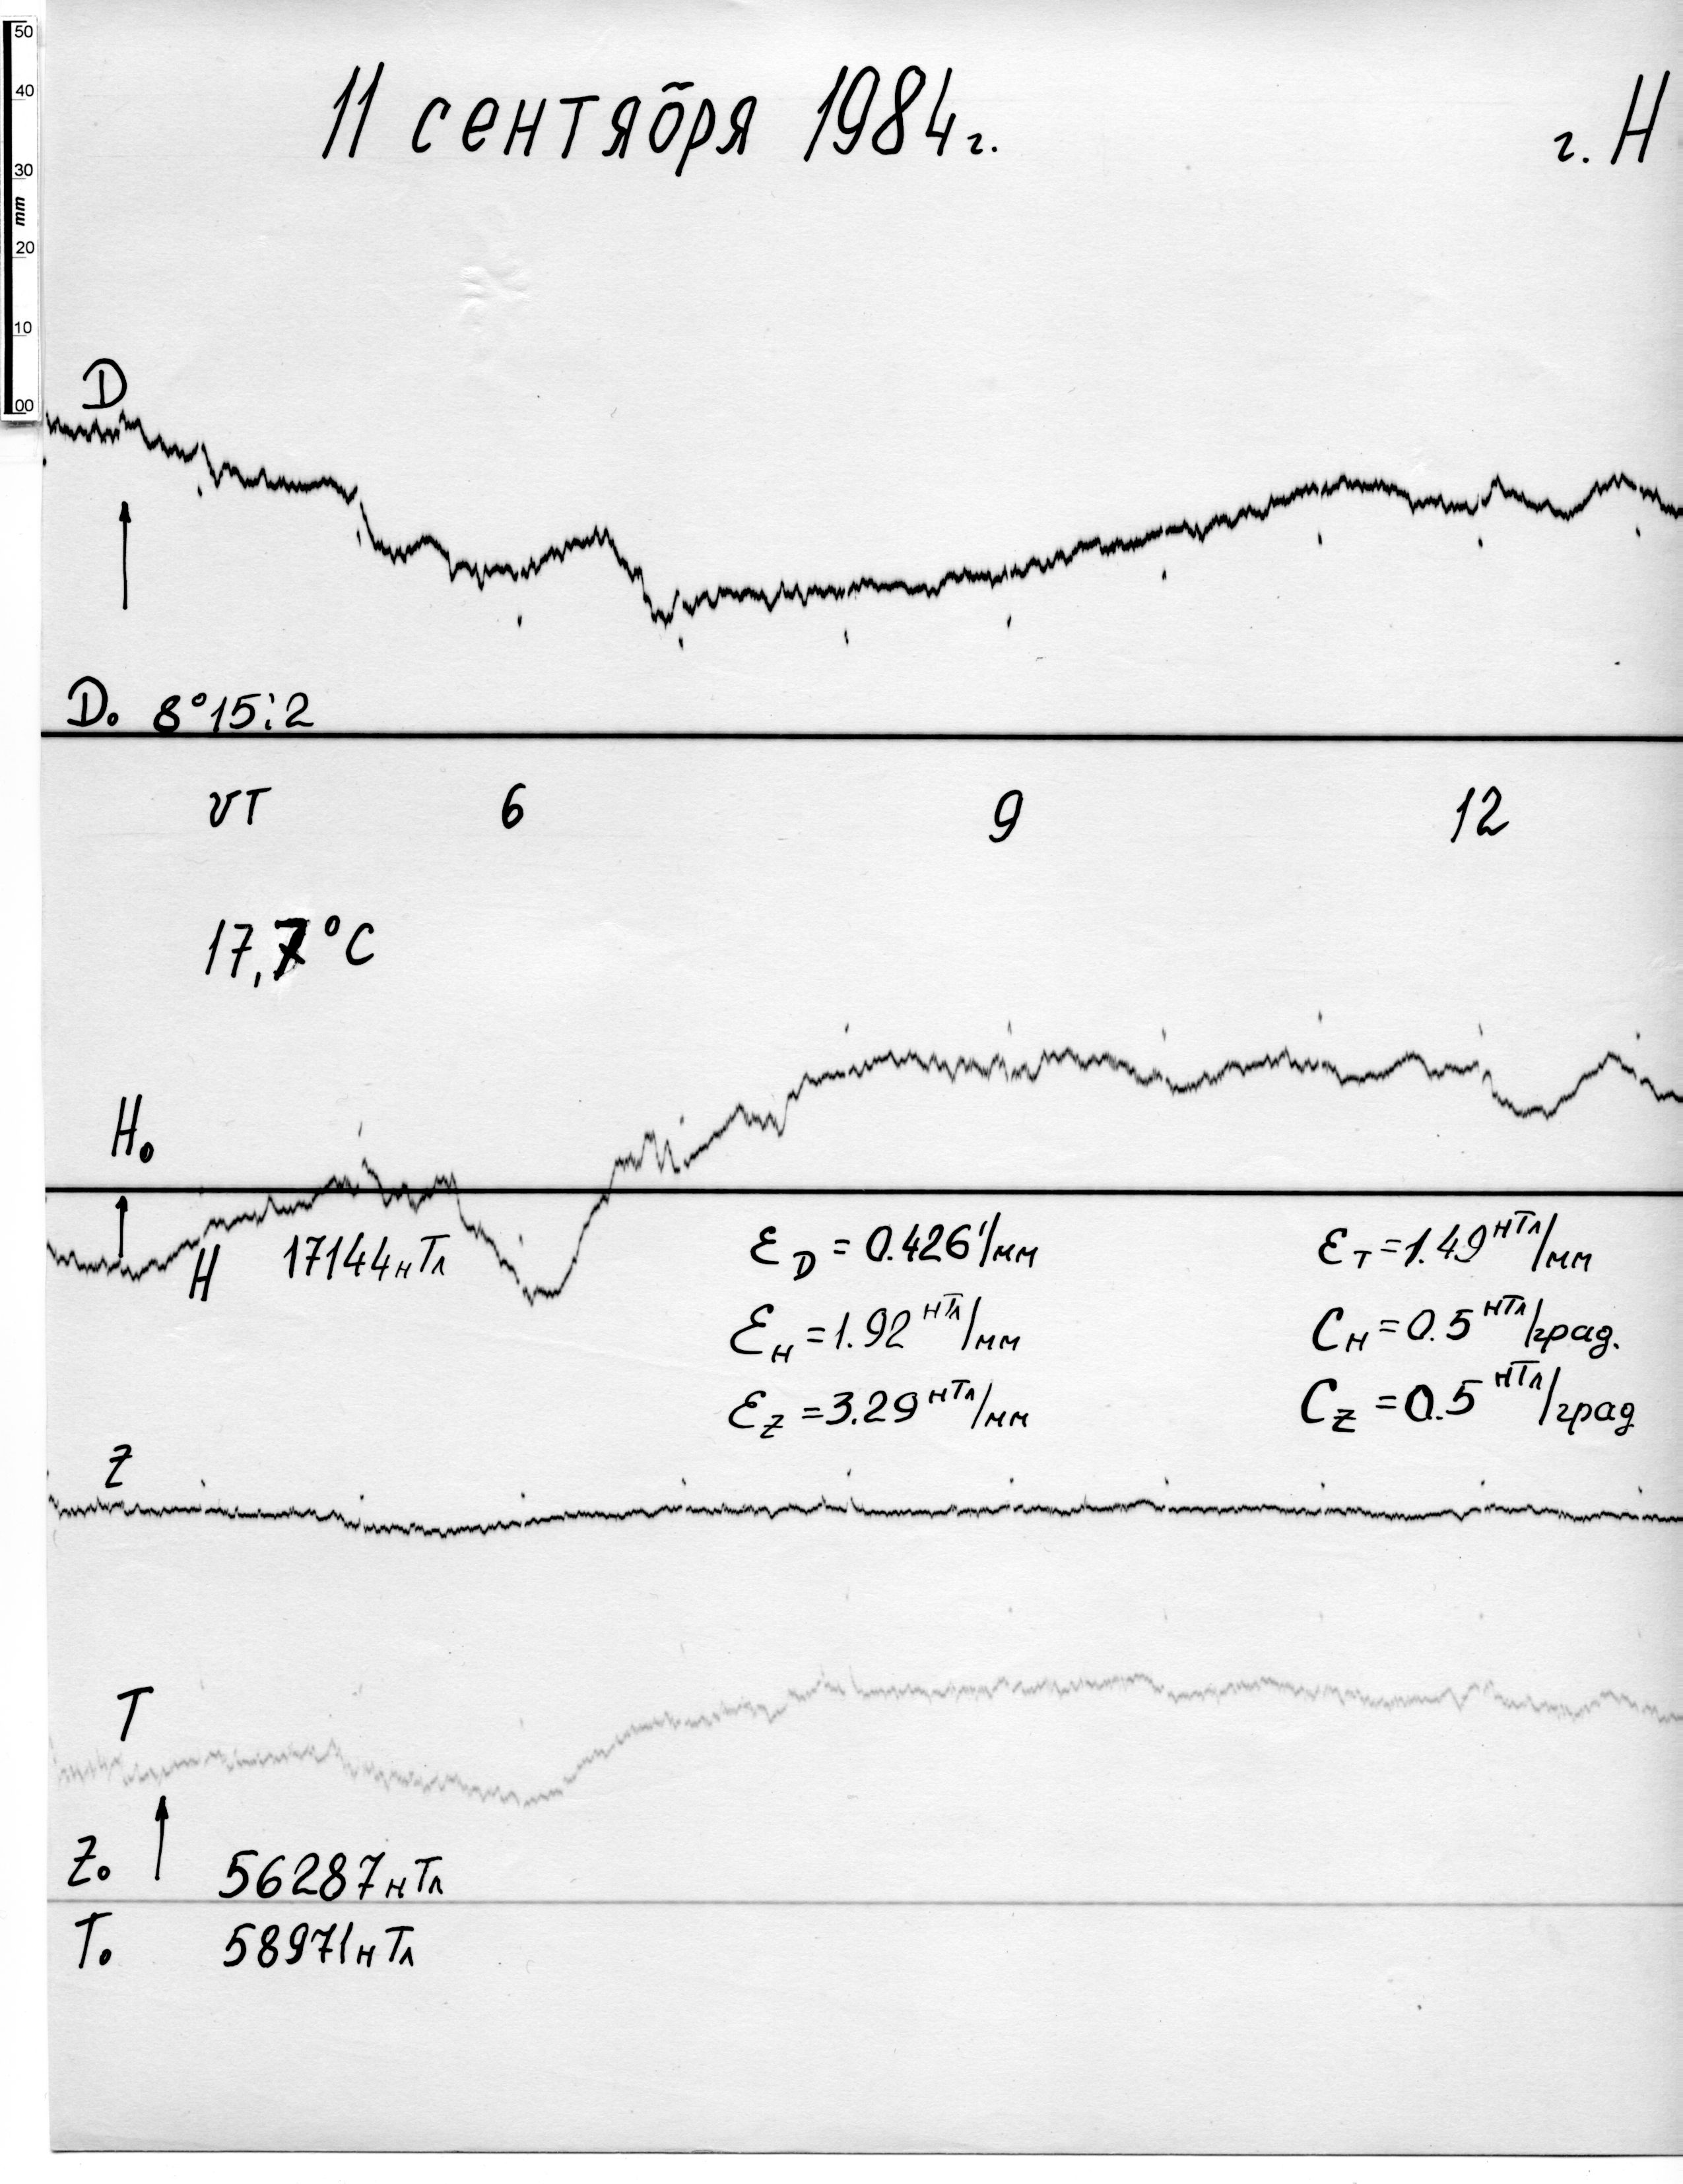 50
40
30
mm
20
10
00
11 сентября 1984г.
г. Н
D
D₀ 8°15′.2
UT 6 9 12
17,7°C
H₀
H 17144нТл
ε_D = 0.426'/мм
ε_T = 1.49 нТл/мм
ε_H = 1.92 нТл/мм
C_H = 0.5 нТл/град.
ε_Z = 3.29 нТл/мм
C_Z = 0.5 нТл/град
Z
T
Z₀ 56287нТл
T₀ 58971нТл